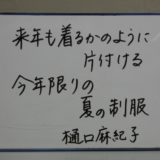 来年も着るかのように
片付ける
今年限りの
夏の制服
樋口麻紀子